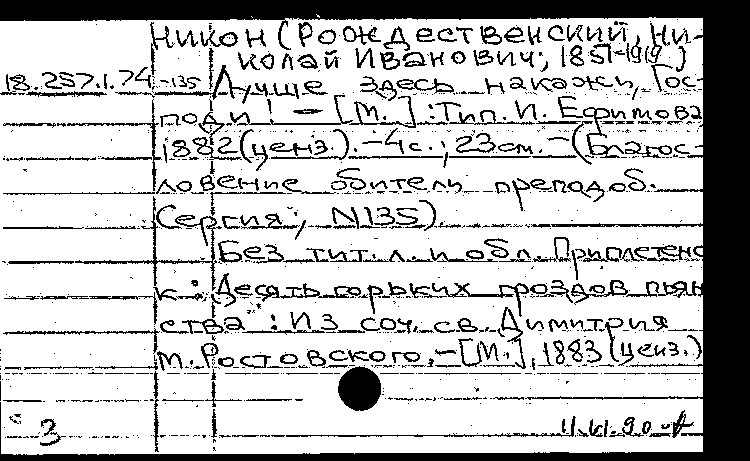 Никон (Рождественский, Ни-
колай Иванович; 1851-1919)
18.257.1.74-135 Лучше здесь накажи, Гос-
поди! - [М.]: Тип. И. Ефимова
1882 (ценз.). - 4с.; 23см. - (Благос-
ловение обители препадоб.
Сергия; N135)
Без тит. л. и обл. Приплетено
к: Десять горьких гроздов пьян
ства: Из соч. св. Димитрия
м. Ростовского. - [М.], 1883 (ценз.)
3